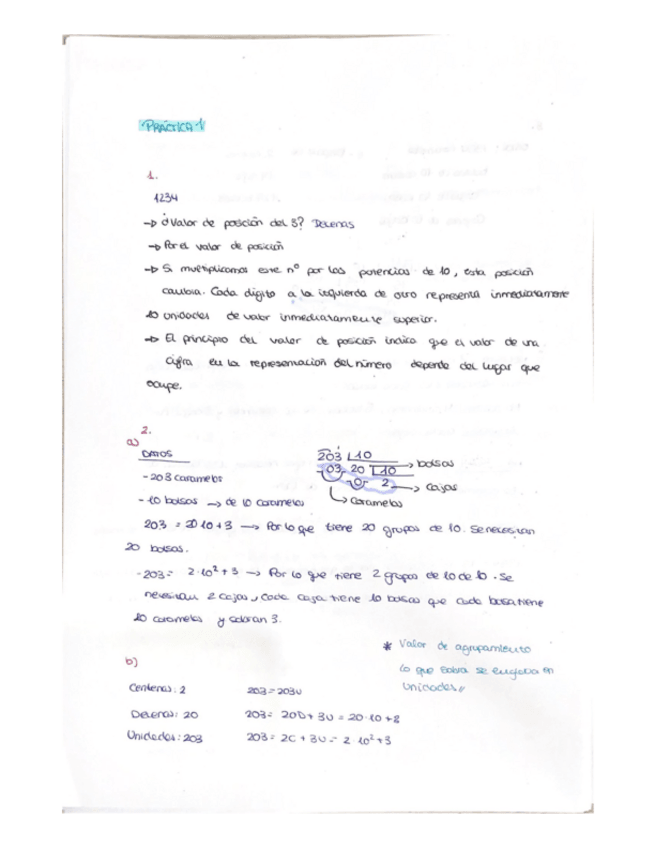 PRÁCTICA 1
1.
1234
→ ¿Valor de posición del 3? Decenas
→ Por el valor de posición
→ Si multiplicamos este nº por las potencias de 10, esta posición
cambia. Cada dígito a la izquierda de otro representa inmediatamente
10 unidades de valor inmediatamente superior.
→ El principio del valor de posición indica que el valor de una
cifra en la representación del número depende del lugar que
ocupe.
2.
a)
DATOS
203 | 10
- 203 caramelos
03 20 | 10 → bolsas
0 2 → cajas
- 10 bolsas → de 10 caramelos
→ caramelos
203 = 20·10+3 → Por lo que tiene 20 grupos de 10. Se necesitan
20 bolsas.
- 203 = 2·10²+3 → Por lo que tiene 2 grupos de 10 de 10. Se
necesitan 2 cajas, cada caja tiene 10 bolsas que cada bolsa tiene
10 caramelos y sobran 3.
* Valor de agrupamiento
lo que sobra se engloba en
unidades //
b)
Centenas: 2 203 = 203U
Decenas: 20 203 = 20D + 3U = 20·10 + 3
Unidades: 203 203 = 2C + 3U = 2·10²+3